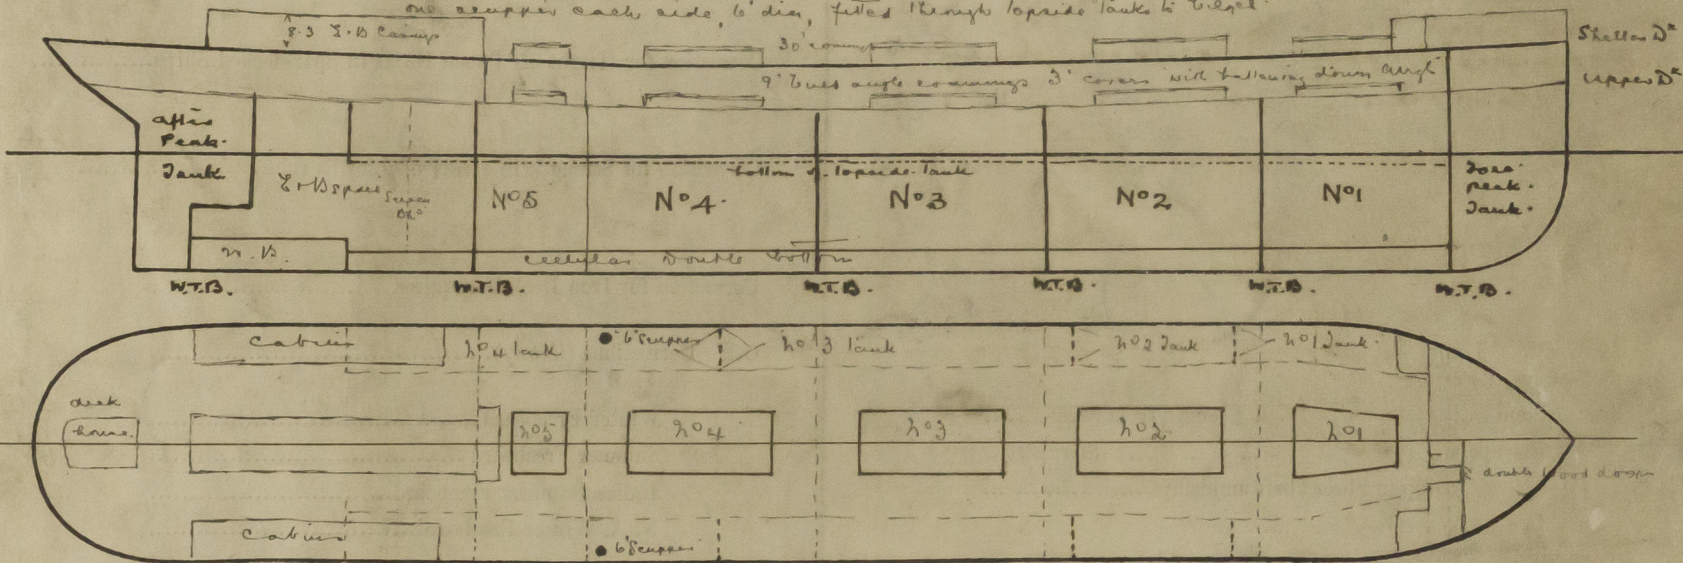 one scupper each side, 6" dia, fitted through topside tanks to bilges.
8.3 E+B Casings
30" coamings
Shelter Dk
9" bulb angle coamings 3" covers with battening down angl
Upper Dk
after
Peak.
Tank
E+B space
Screen
Bhd
bottom of topside tank
No 5
No 4.
No 3
No 2
No 1
Fore
peak.
Tank.
W.B.
cellular Double bottom
W.T.B.
W.T.B.
W.T.B.
W.T.B.
W.T.B.
W.T.B.
Cabins
No 4 tank
6" Scupper
No 3 tank
No 2 Tank
No 1 Tank.
deck
house.
No 5
No 4
No 3
No 2
No 1
double wood doors
Cabins
6" Scupper